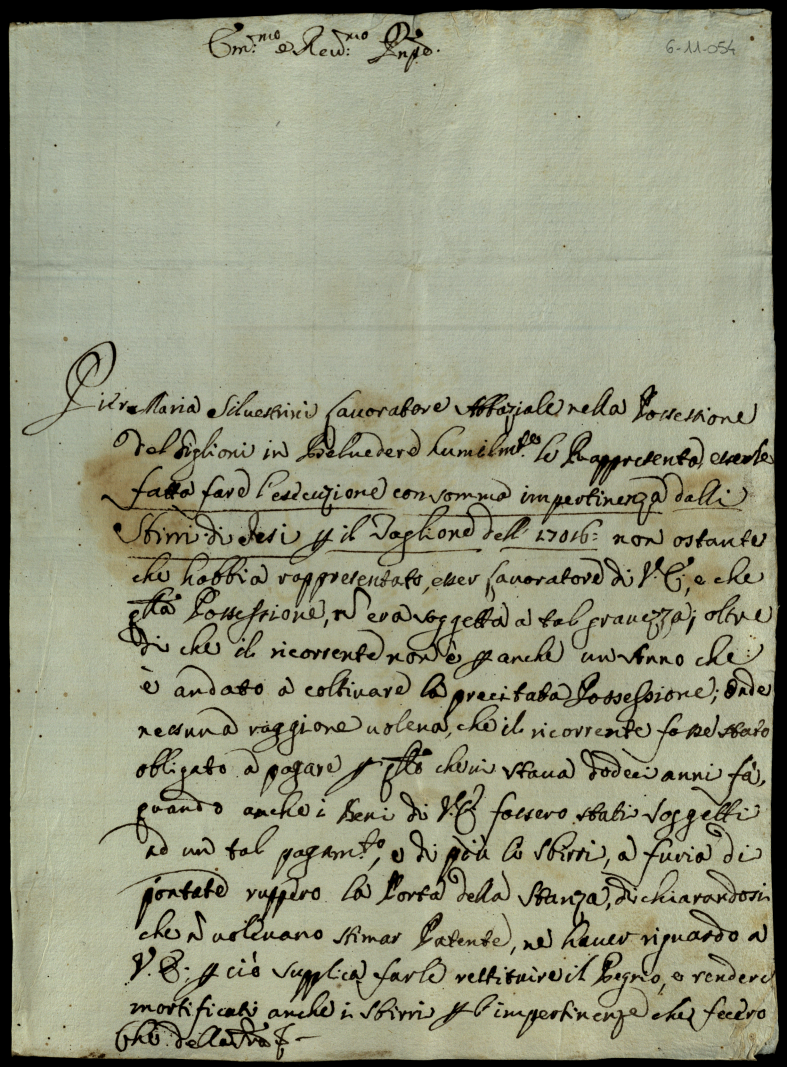 Em:mo e Rev:mo Pnpe.
6-11-054
Pier Maria Siluestrini Lauoratore Abbaziale nella Possessione
del Figlioni in Beluedere humilmte. le Rappresenta esserle
fatta fare l'esecuzione con somma impertinenza dalli
Sbirri di Jesi p il Taglione dell' 17016: non ostante
che habbia rappresentato, esser Lauoratore di V.E., e che
qtta Possessione, n̄ era soggetta a tal grauezza; oltre
di che il ricorrente non è p anche un Anno che
è andato a coltiuare la precitata Possessione; onde
nessuna raggione uoleua, che il ricorrente fosse stato
obligato a pagare p qtto che ui staua dodeci anni fà,
quando anche i Beni di V.E. fossero stati soggetti
ad un tal pagamto., e di più li Sbirri, a furia di
pontate ruppero la Porta della Stanza, dichiarandosi
che n̄ uoleuano stimar Patente, ne hauer riguardo a
V.E. p ciò supplica farle restituire il Pegno, e rendere
mortificati anche i Sbirri p l'impertinenze che fecero
Che della